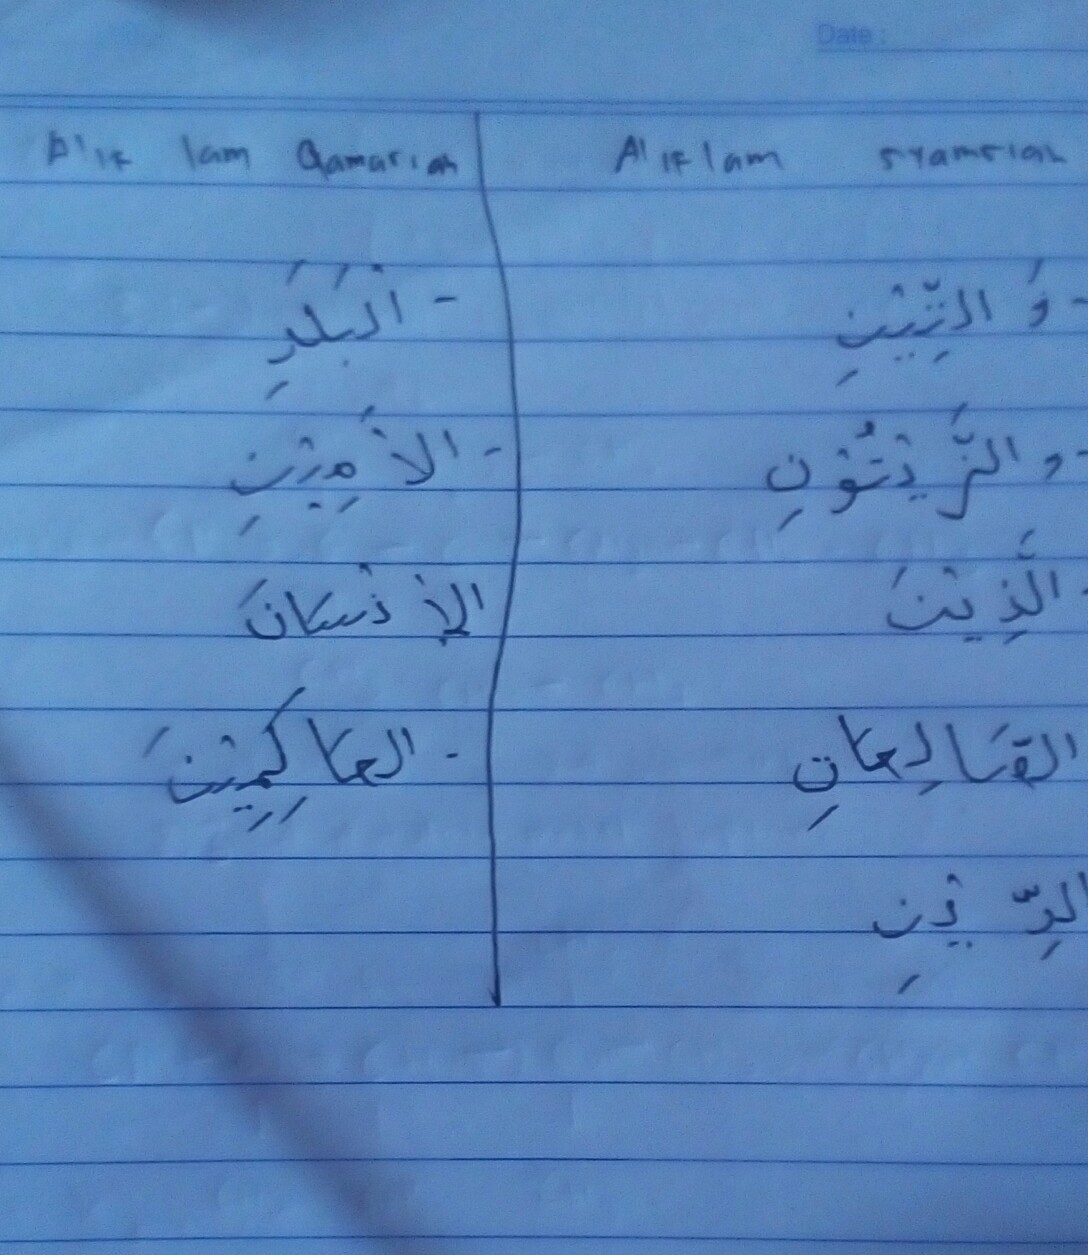 Date :
Alif lam Qamariah
Alif lam syamsiah
- الْبَلَدِ
- وَ التِّيْنِ
- الأَمِيْنِ
- و الزَّيْتُوْنِ
الإِنْسَانَ
- الَّذِيْنَ
- الحَاكِمِيْنَ
الصَّالِحَاتِ
الدِّيْنِ